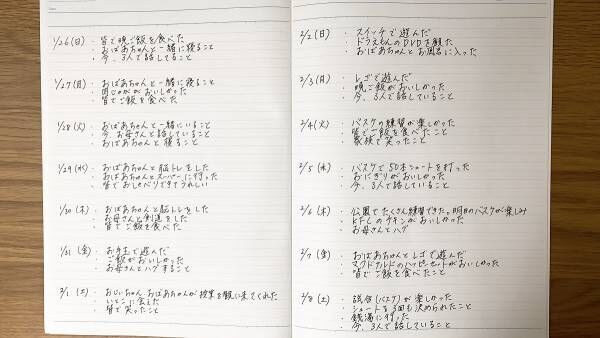 1/26(日) ・皆で晩ご飯を食べた
・おばあちゃんと一緒に寝ること
・今、3人で話していること
1/27(月) ・おばあちゃんと一緒に寝ること
・がおいしかった
・皆でご飯を食べた
1/28(火) ・おばあちゃんと一緒にいること
・今お母さんと話していること
・おばあちゃんと寝ること
1/29(水) ・おばあちゃんと脳トレをした
・おばあちゃんとスーパーに行った
・皆でおしゃべりできてうれしい
1/30(木) ・おばあちゃんと脳トレをした
・お母さんと剣道をした
・皆でご飯を食べた
1/31(金) ・お手玉で遊んだ
・ご飯がおいしかった
・お母さんとハグすること
2/1(土) ・おじいちゃん、おばあちゃんが授業を観に来てくれた
・いとこに会えた
・皆で笑ったこと
2/2(日) ・スイッチで遊んだ
・ドラえもんのDVDを観た
・おばあちゃんとお風呂に入った
2/3(月) ・レゴで遊んだ
・晩ご飯がおいしかった
・今、3人で話していること
2/4(火) ・バスケの練習が楽しかった
・皆でご飯を食べたこと
・家族で笑ったこと
2/5(水) ・バスケで50本シュートを打った
・おにぎりがおいしかった
・今、3人で話していること
2/6(木) ・公園でたくさん練習できた。明日のバスケが楽しみ
・KFCのチキンがおいしかった
・お母さんとハグ
2/7(金) ・おばあちゃんとレゴで遊んだ
・マクドナルドのハッピーセットがおいしかった
・皆でご飯を食べたこと
2/8(土) ・試合(バスケ)が楽しかった
・シュートを3回も決められたこと
・銭湯に行った
・今、3人で話していること